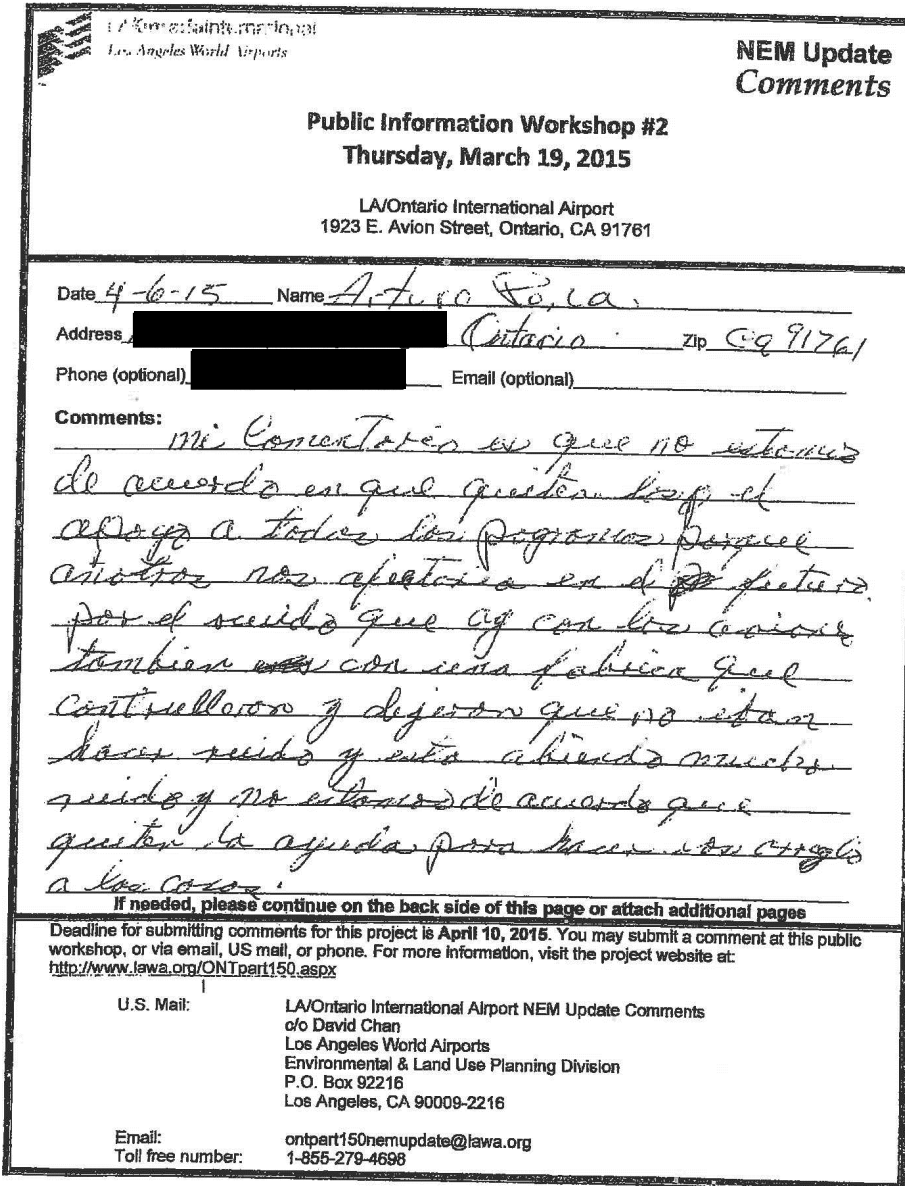 Los Angeles World Airports
NEM Update
Comments
Public Information Workshop #2
Thursday, March 19, 2015
LA/Ontario International Airport
1923 E. Avion Street, Ontario, CA 91761
Date 4-6-15 Name Arturo
Address Ontario Zip Ca 91761
Phone (optional) Email (optional)
Comments:
mi Comentario es que no estamos
de acuerdo en que quiten el
apoyo a todos los pogramas porque
anotros nos afectaria en el futuro
por el ruido que ay con los aviones
tambien con una fabrica que
contrulleron y dijeron que no iban
hacer ruido y esta abiendo mucho
ruido y no estamos de acuerdo que
quiten la ayuda para hacer arreglo
a las casas.
If needed, please continue on the back side of this page or attach additional pages
Deadline for submitting comments for this project is April 10, 2015. You may submit a comment at this public
workshop, or via email, US mail, or phone. For more information, visit the project website at:
http://www.lawa.org/ONTpart150.aspx
U.S. Mail: LA/Ontario International Airport NEM Update Comments
c/o David Chan
Los Angeles World Airports
Environmental & Land Use Planning Division
P.O. Box 92216
Los Angeles, CA 90009-2216
Email: ontpart150nemupdate@lawa.org
Toll free number: 1-855-279-4698